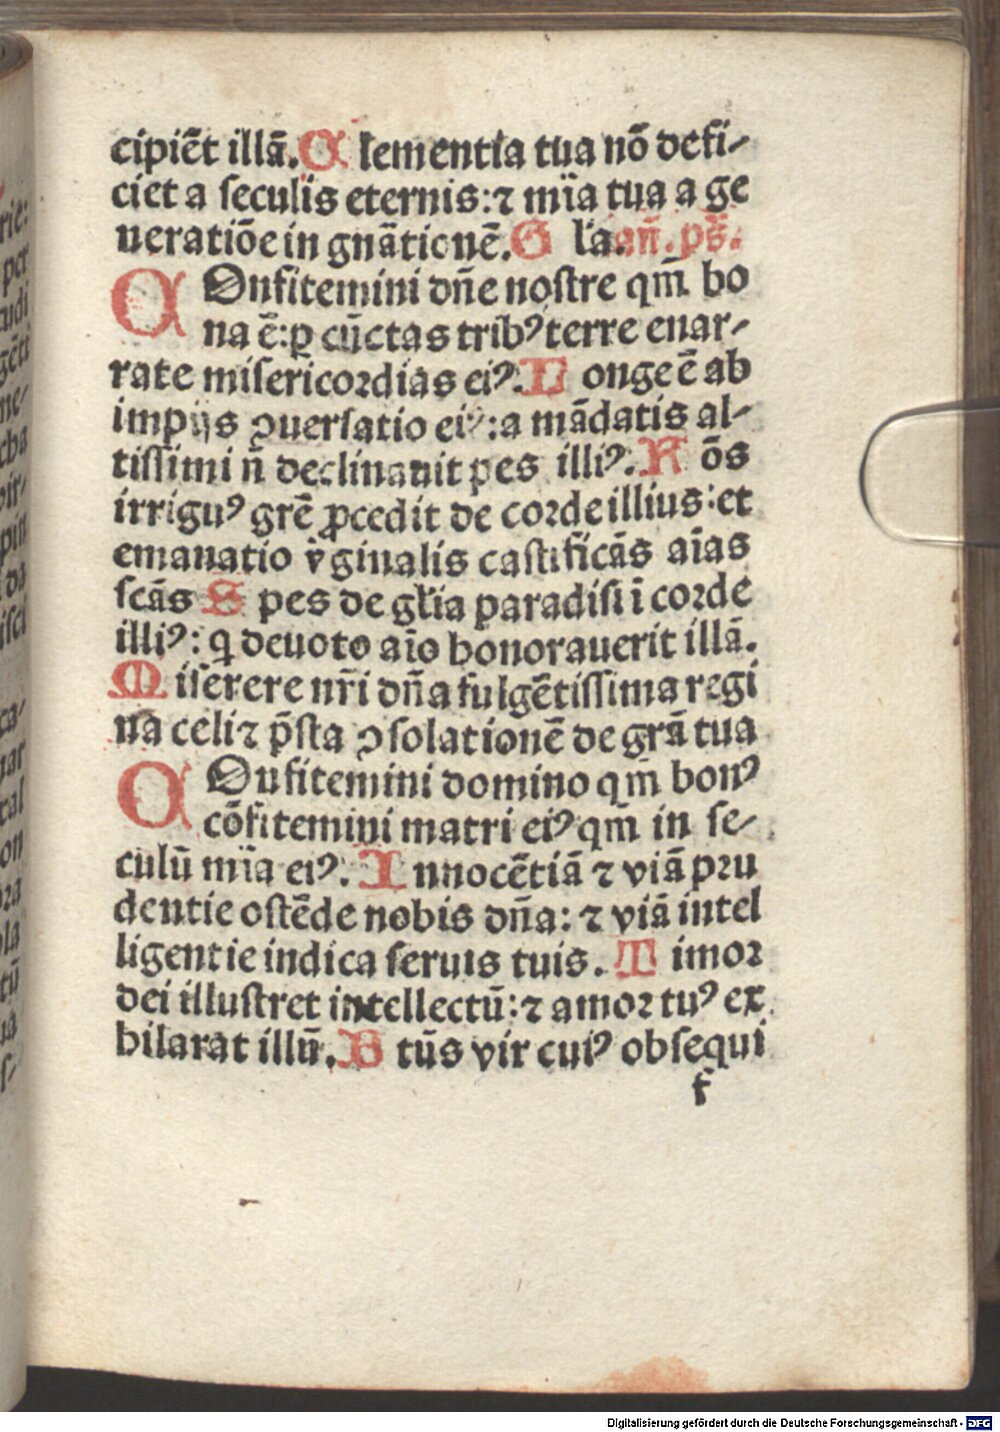 cipiēt illā. C lementia tua nō defi-
ciet a seculis eternis: ⁊ mīa tua a ge
neratiōe in gnātionē. G l'a. añ. ps̄.
C Onfitemini dñe nostre qm̄ bo
na ē: ꝑ cūctas tribꝰ terre enar-
rate misericordias eiꝰ. L onge ē ab
impijs ꝯuersatio eiꝰ: a mādatis al-
tissimi n̄ declinauit pes illiꝰ. R ōs
irriguꝰ grē ꝓcedit de corde illius: et
emanatio v̄ginalis castificās aīas
scās S pes de gl'ia paradisi ī corde
illiꝰ: q̄ deuoto aīo honorauerit illā.
M iserere nr̄i dñā fulgētissima regi
na celi ⁊ p̄sta ꝯsolationē de grā tua
C Onfitemini domino qm̄ bonꝰ
cōfitemini matri eiꝰ qm̄ in se-
culū mīa eiꝰ. I nnocētiā ⁊ viā pru
dentie ostēde nobis dñā: ⁊ viā intel
ligentie indica seruis tuis. T imor
dei illustret intellectū: ⁊ amor tuꝰ ex
hilarat illū. B tūs vir cuiꝰ obsequi
f
Digitalisierung gefördert durch die Deutsche Forschungsgemeinschaft - DFG